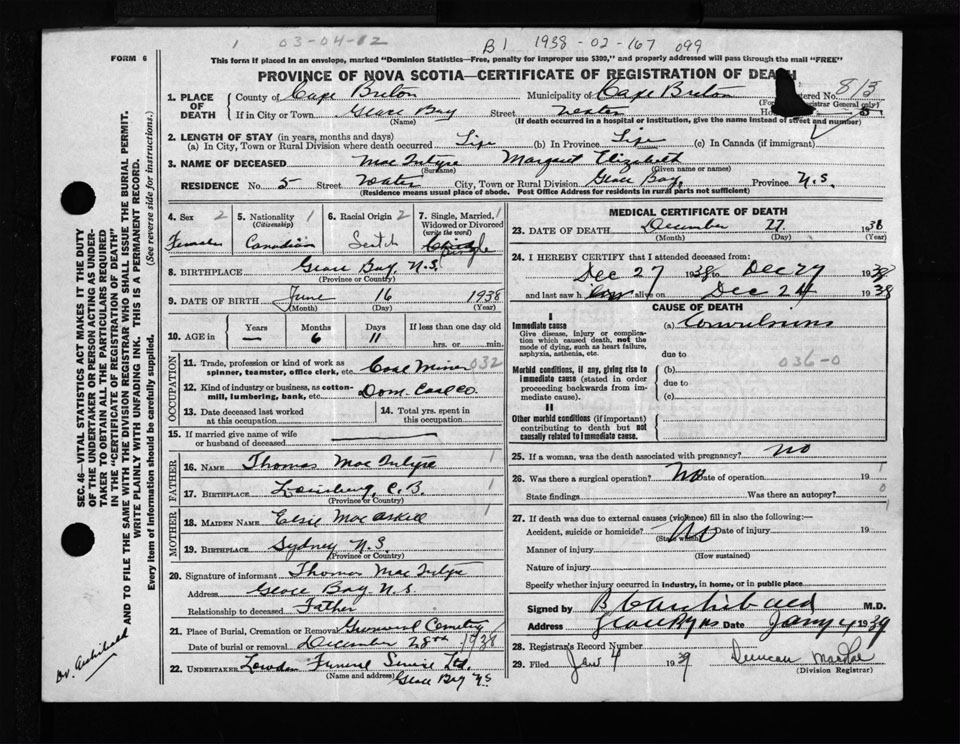 1 03-04-12 B1 1938-02-167 099
FORM 6
This form if placed in an envelope, marked "Dominion Statistics—Free, penalty for improper use $300," and properly addressed will pass through the mail "FREE"
PROVINCE OF NOVA SCOTIA—CERTIFICATE OF REGISTRATION OF DEATH
1. PLACE OF DEATH
County of Cape Breton Municipality of Cape Breton Registered No. 813
(For Registrar General only)
If in City or Town Glace Bay Street Water 5
(Name) (If death occurred in a hospital or institution, give the name instead of street and number)
2. LENGTH OF STAY (in years, months and days)
(a) In City, Town or Rural Division where death occurred Life (b) In Province Life (c) In Canada (if immigrant)
3. NAME OF DECEASED Mac Intyre Margaret Elizabeth
(Surname) (Given name or names)
RESIDENCE No. 5 Street Water City, Town or Rural Division Glace Bay, Province N.S.
(Residence means usual place of abode. Post Office Address for residents in rural parts not sufficient)
4. Sex 2 Female
5. Nationality 1 (Citizenship) Canadian
6. Racial Origin 2 Scotch
7. Single, Married, Widowed or Divorced (write the word) 1 Single
8. BIRTHPLACE Glace Bay, N.S.
(Province or Country)
9. DATE OF BIRTH June 16 1938
(Month) (Day) (Year)
10. AGE in Years — Months 6 Days 11 If less than one day old hrs. or min.
OCCUPATION
11. Trade, profession or kind of work as spinner, teamster, office clerk, etc. Coal Miner 032
12. Kind of industry or business, as cotton-mill, lumbering, bank, etc. Dom. Coal Co.
13. Date deceased last worked at this occupation
14. Total yrs. spent in this occupation
15. If married give name of wife or husband of deceased
FATHER
16. NAME Thomas Mac Intyre
17. BIRTHPLACE Louisburg, C.B. 1
(Province or Country)
MOTHER
18. MAIDEN NAME Elsie MacAskill 1
19. BIRTHPLACE Sydney N.S.
(Province or Country)
20. Signature of informant Thomas Mac Intyre
Address Glace Bay N.S.
Relationship to deceased Father
21. Place of Burial, Cremation or Removal Greenwood Cemetery
Date of burial or removal December 28th 1938
22. UNDERTAKER Lowden Funeral Service Ltd.
(Name and address) Glace Bay N.S.
MEDICAL CERTIFICATE OF DEATH
23. DATE OF DEATH December 27 1938
(Month) (Day) (Year)
24. I HEREBY CERTIFY that I attended deceased from:
Dec 27 1938 to Dec 27 1938
and last saw h alive on Dec 24 1938
CAUSE OF DEATH
I
Immediate cause (a) Convulsions
Give disease, injury or complication which caused death, not the mode of dying, such as heart failure, asphyxia, asthenia, etc.
due to
036-0
Morbid conditions, if any, giving rise to immediate cause (stated in order proceeding backwards from immediate cause). (b)
due to
(c)
II
Other morbid conditions (if important) contributing to death but not causally related to immediate cause.
25. If a woman, was the death associated with pregnancy? no
26. Was there a surgical operation? No Date of operation 19 1
State findings Was there an autopsy? 0
27. If death was due to external causes (violence) fill in also the following:—
Accident, suicide or homicide? No Date of injury 19 1
(State which)
Manner of injury
(How sustained)
Nature of injury
Specify whether injury occurred in industry, in home, or in public place
Signed by B Archibald M.D.
Address Glace Bay NS Date Jany 4 1939
28. Registrar's Record Number
29. Filed Jan 4 1939 Duncan
(Division Registrar)
SEC. 46—VITAL STATISTICS ACT MAKES IT THE DUTY
OF THE UNDERTAKER OR PERSON ACTING AS UNDERTAKER TO OBTAIN ALL THE PARTICULARS REQUIRED
IN THE "CERTIFICATE OF REGISTRATION OF DEATH"
AND TO FILE THE SAME WITH THE DIVISION REGISTRAR WHO SHALL ISSUE THE BURIAL PERMIT.
WRITE PLAINLY WITH UNFADING INK. THIS IS A PERMANENT RECORD.
Every item of information should be carefully supplied. (See reverse side for instructions.)
Dr. Archibald